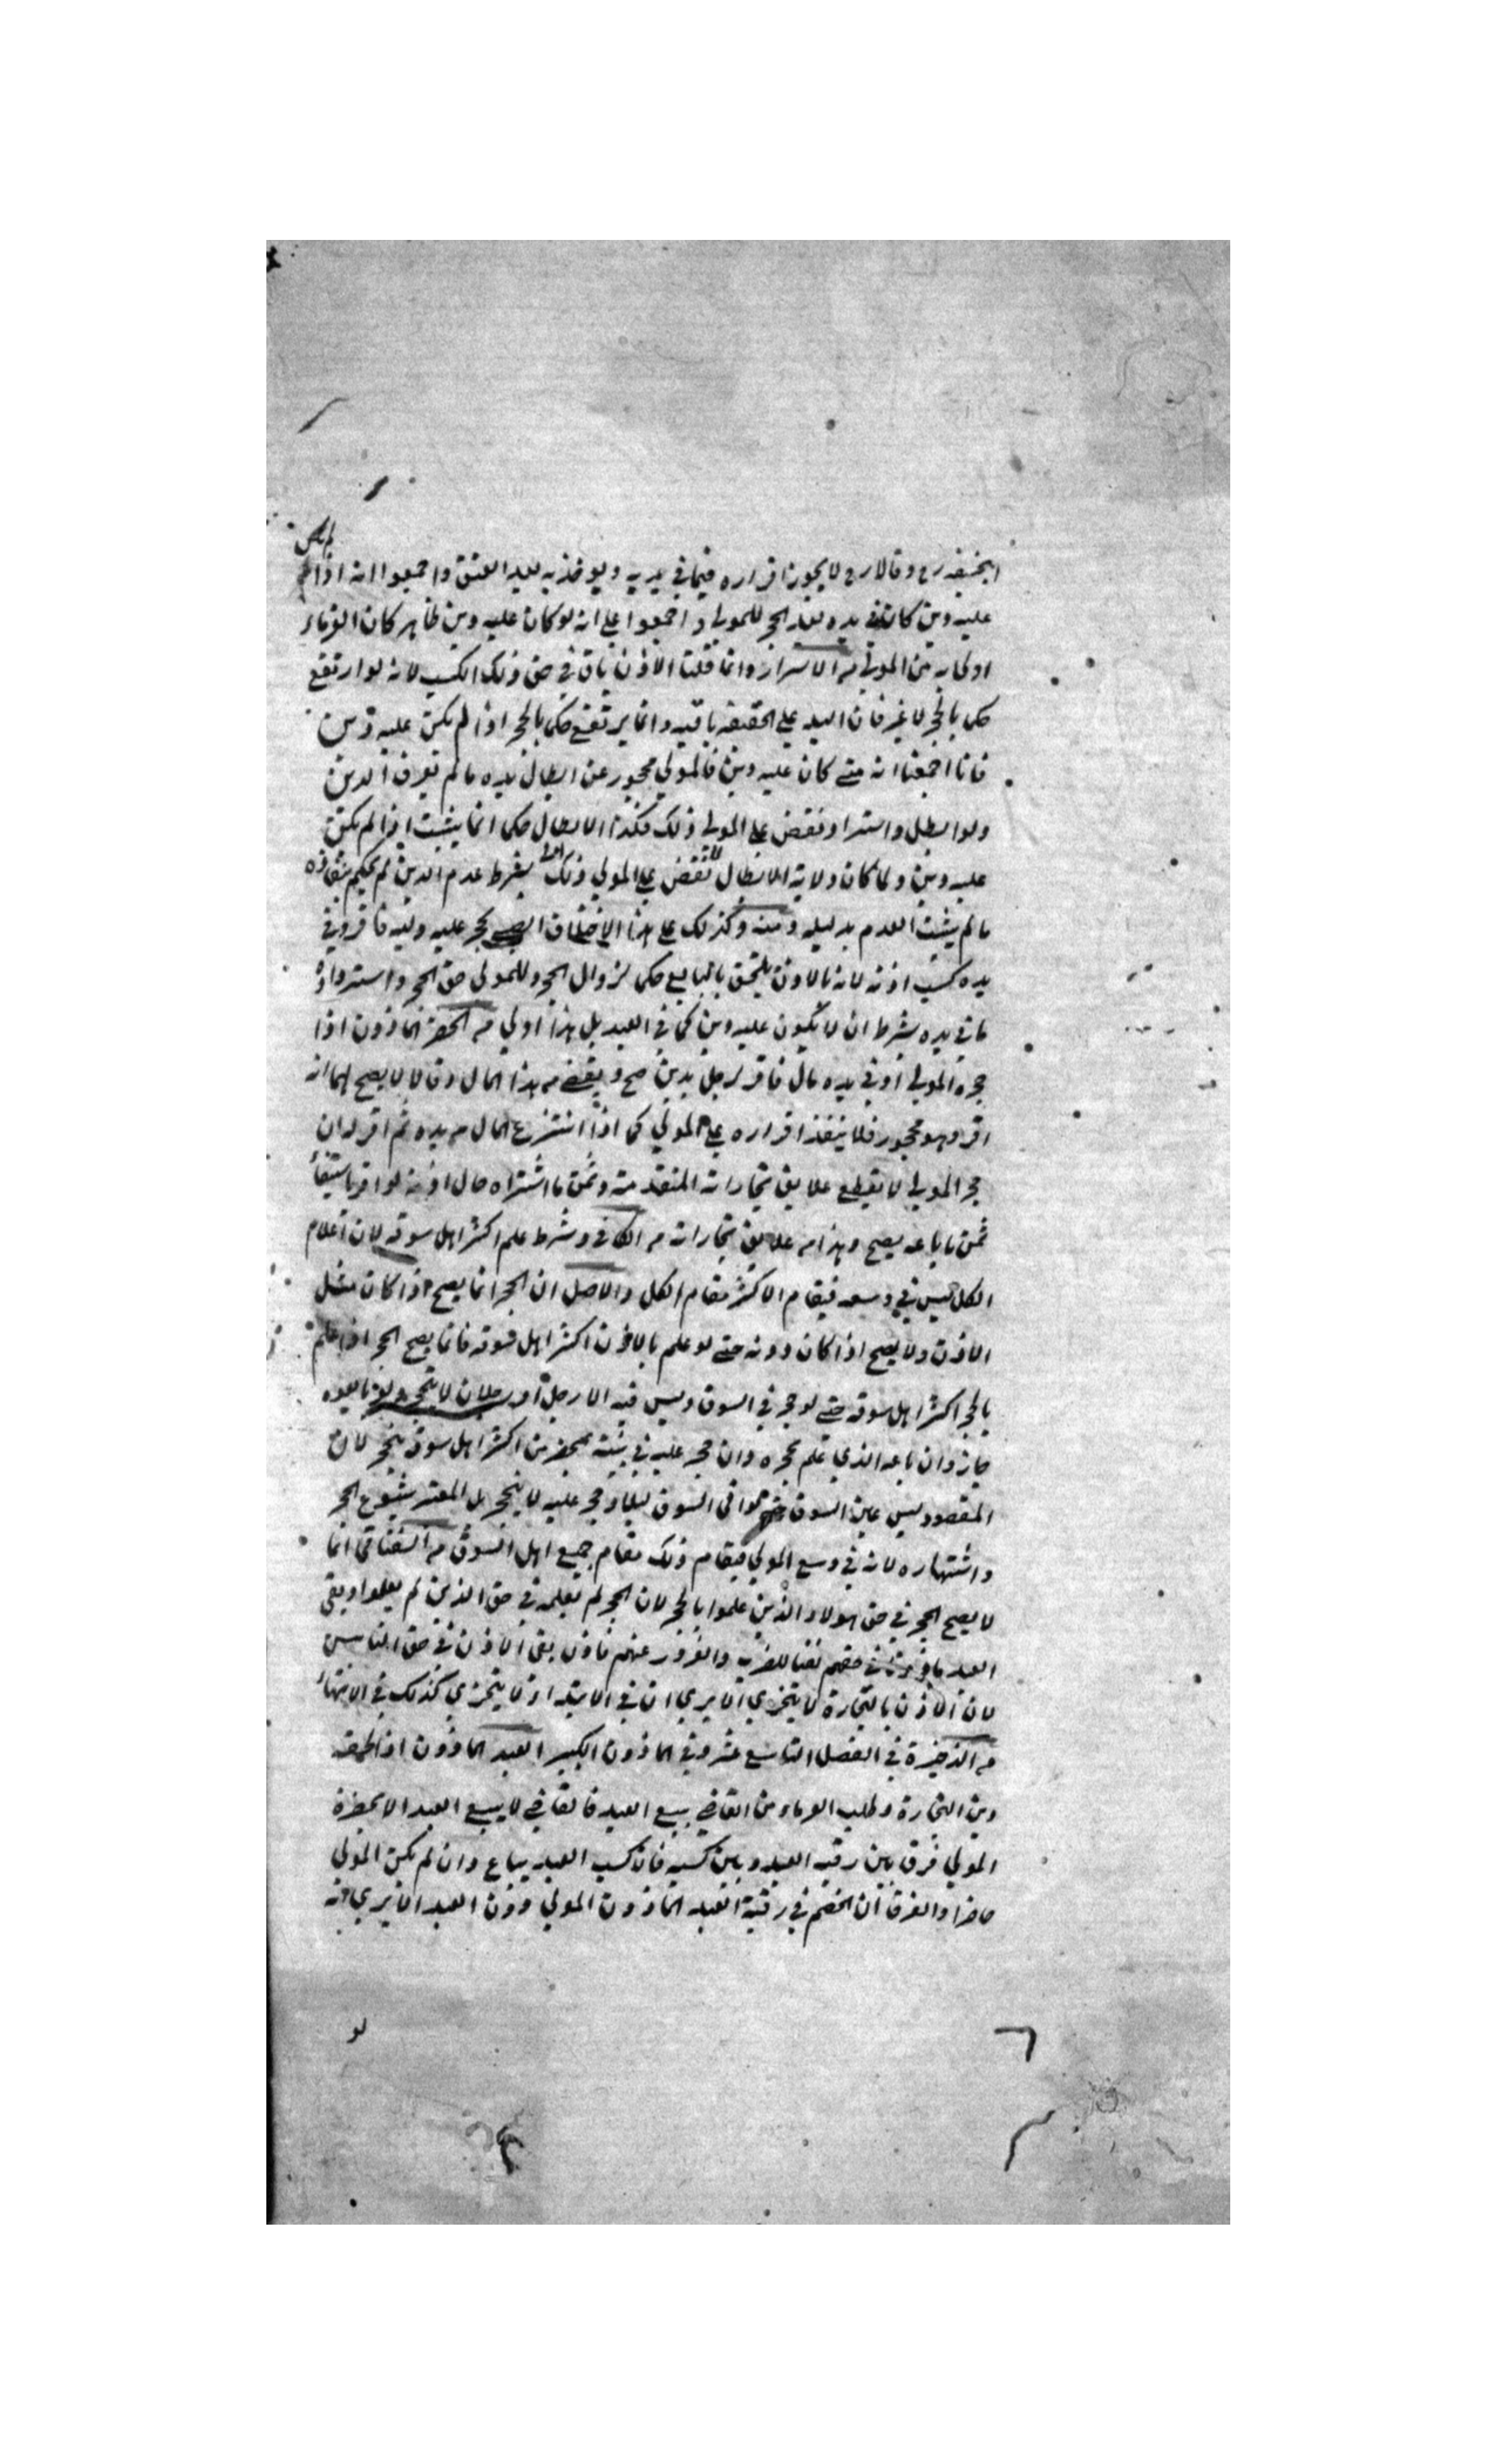 ابحنيفه رح وقالا رح لا يجوز اقراره فيما في يديه ويوخذ به بعد العتق واجمعوا انه اذا لم يكن
عليه دين كان في يده بعد الحجر للمولي واجمعوا علي انه لو كان عليه دين ظاهر كان الغرماء
اولي به من المولي من الاسرار وانما قلنا الاذن باق في حق ذلك الكسب لانه لو ارتفع
حكما بالحجر لا غير فان اليد علي الحقيقه باقيه وانما يرتفع حكما بالحجر اذا لم يكن عليه دين
فانا اجمعنا انه متي كان عليه دين فالمولي محجور عن ابطال يده ما لم يعرف الدين
ولو ابطل واسترد نقض علي المولي ذلك فكذا الابطال حكما انما يثبت اذا لم يكن
عليه دين ولما كان ولاية الابطال للنقض علي المولي ذلك بشرط عدم الدين لم يحكم بنفاذه
ما لم يثبت العدم بدليله ومنه وكذلك علي هذا الاختلاف الصبي يحجر عليه وليه فاقر وفي
يده كسب اذنه لانه بالاذن يلتحق بالبايع حكما لزوال الحجر وللمولي حق الحجر واسترداد
ما في يده بشرط ان لا يكون عليه دين كما في العبد بل هذا اولي من الحصر الماذون اذا
حجره المولي وفي يده مال فاقر لرجل بدين صح ويقضي من هذا المال وقالا لا يصح لهما انه
اقر وهو محجور فلا ينفذ اقراره علي المولي كما اذا انتزع المال من يده ثم اقر له ان
حجر المولي لا يقطع علايق تجاراته المتقدمة وثمن ما اشتراه حال اذنه لو اقر باستيفاء
ثمن ما باعه يصح وهذا من علايق تجاراته من الكافي وشرط علم اكثر اهل سوقه لان اعلام
الكل ليس في وسعه فيقام الاكثر مقام الكل والاصل ان الحجر انما يصح اذا كان مثل
الاذن ولا يصح اذا كان دونه حتي لو علم بالاذن اكثر اهل سوقه فانما يصح الحجر اذا علم
بالحجر اكثر اهل سوقه حتي لو حجر في السوق وليس فيه الا رجل او رجلان لا ينحجر ولو بايعوه
جاز وان باعه الذي علم بحجره وان حجر عليه في بيته بمحضر من اكثر اهل سوقه ينحجر لان
المقصود ليس عين السوق حتي لو اتي السوق ليلا وحجر عليه لا ينحجر بل المعتبر شيوع الحجر
واشتهاره لانه في وسع المولي فيقام ذلك مقام جميع اهل السوق من السغناقي انما
لا يصح الحجر في حق هولاء الذين علموا بالحجر لان الحجر لم يعلمه في حق الذين لم يعلموا وبقي
العبد ماذونا في حقهم نفيا للضرر والغرور عنهم فاذا بقي الاذن في حق الناس
لان الاذن بالتجارة لا يتجزي الا يري ان في الابتداء لا يتجزي كذلك في الانتهاء
من الذخيرة في الفصل التاسع عشر وفي الماذون الكبير العبد الماذون اذا لحقه
دين التجارة وطلب الغرماء من القاضي بيع العبد فالقاضي لا يبيع العبد الا بحضرة
المولي فرق بين رقبه العبد وبين كسبه فان كسب العبد يباع وان لم يكن المولي
حاضرا والفرق ان الخصم في رقبة العبد الماذون المولي دون العبد الا يري انه
لو